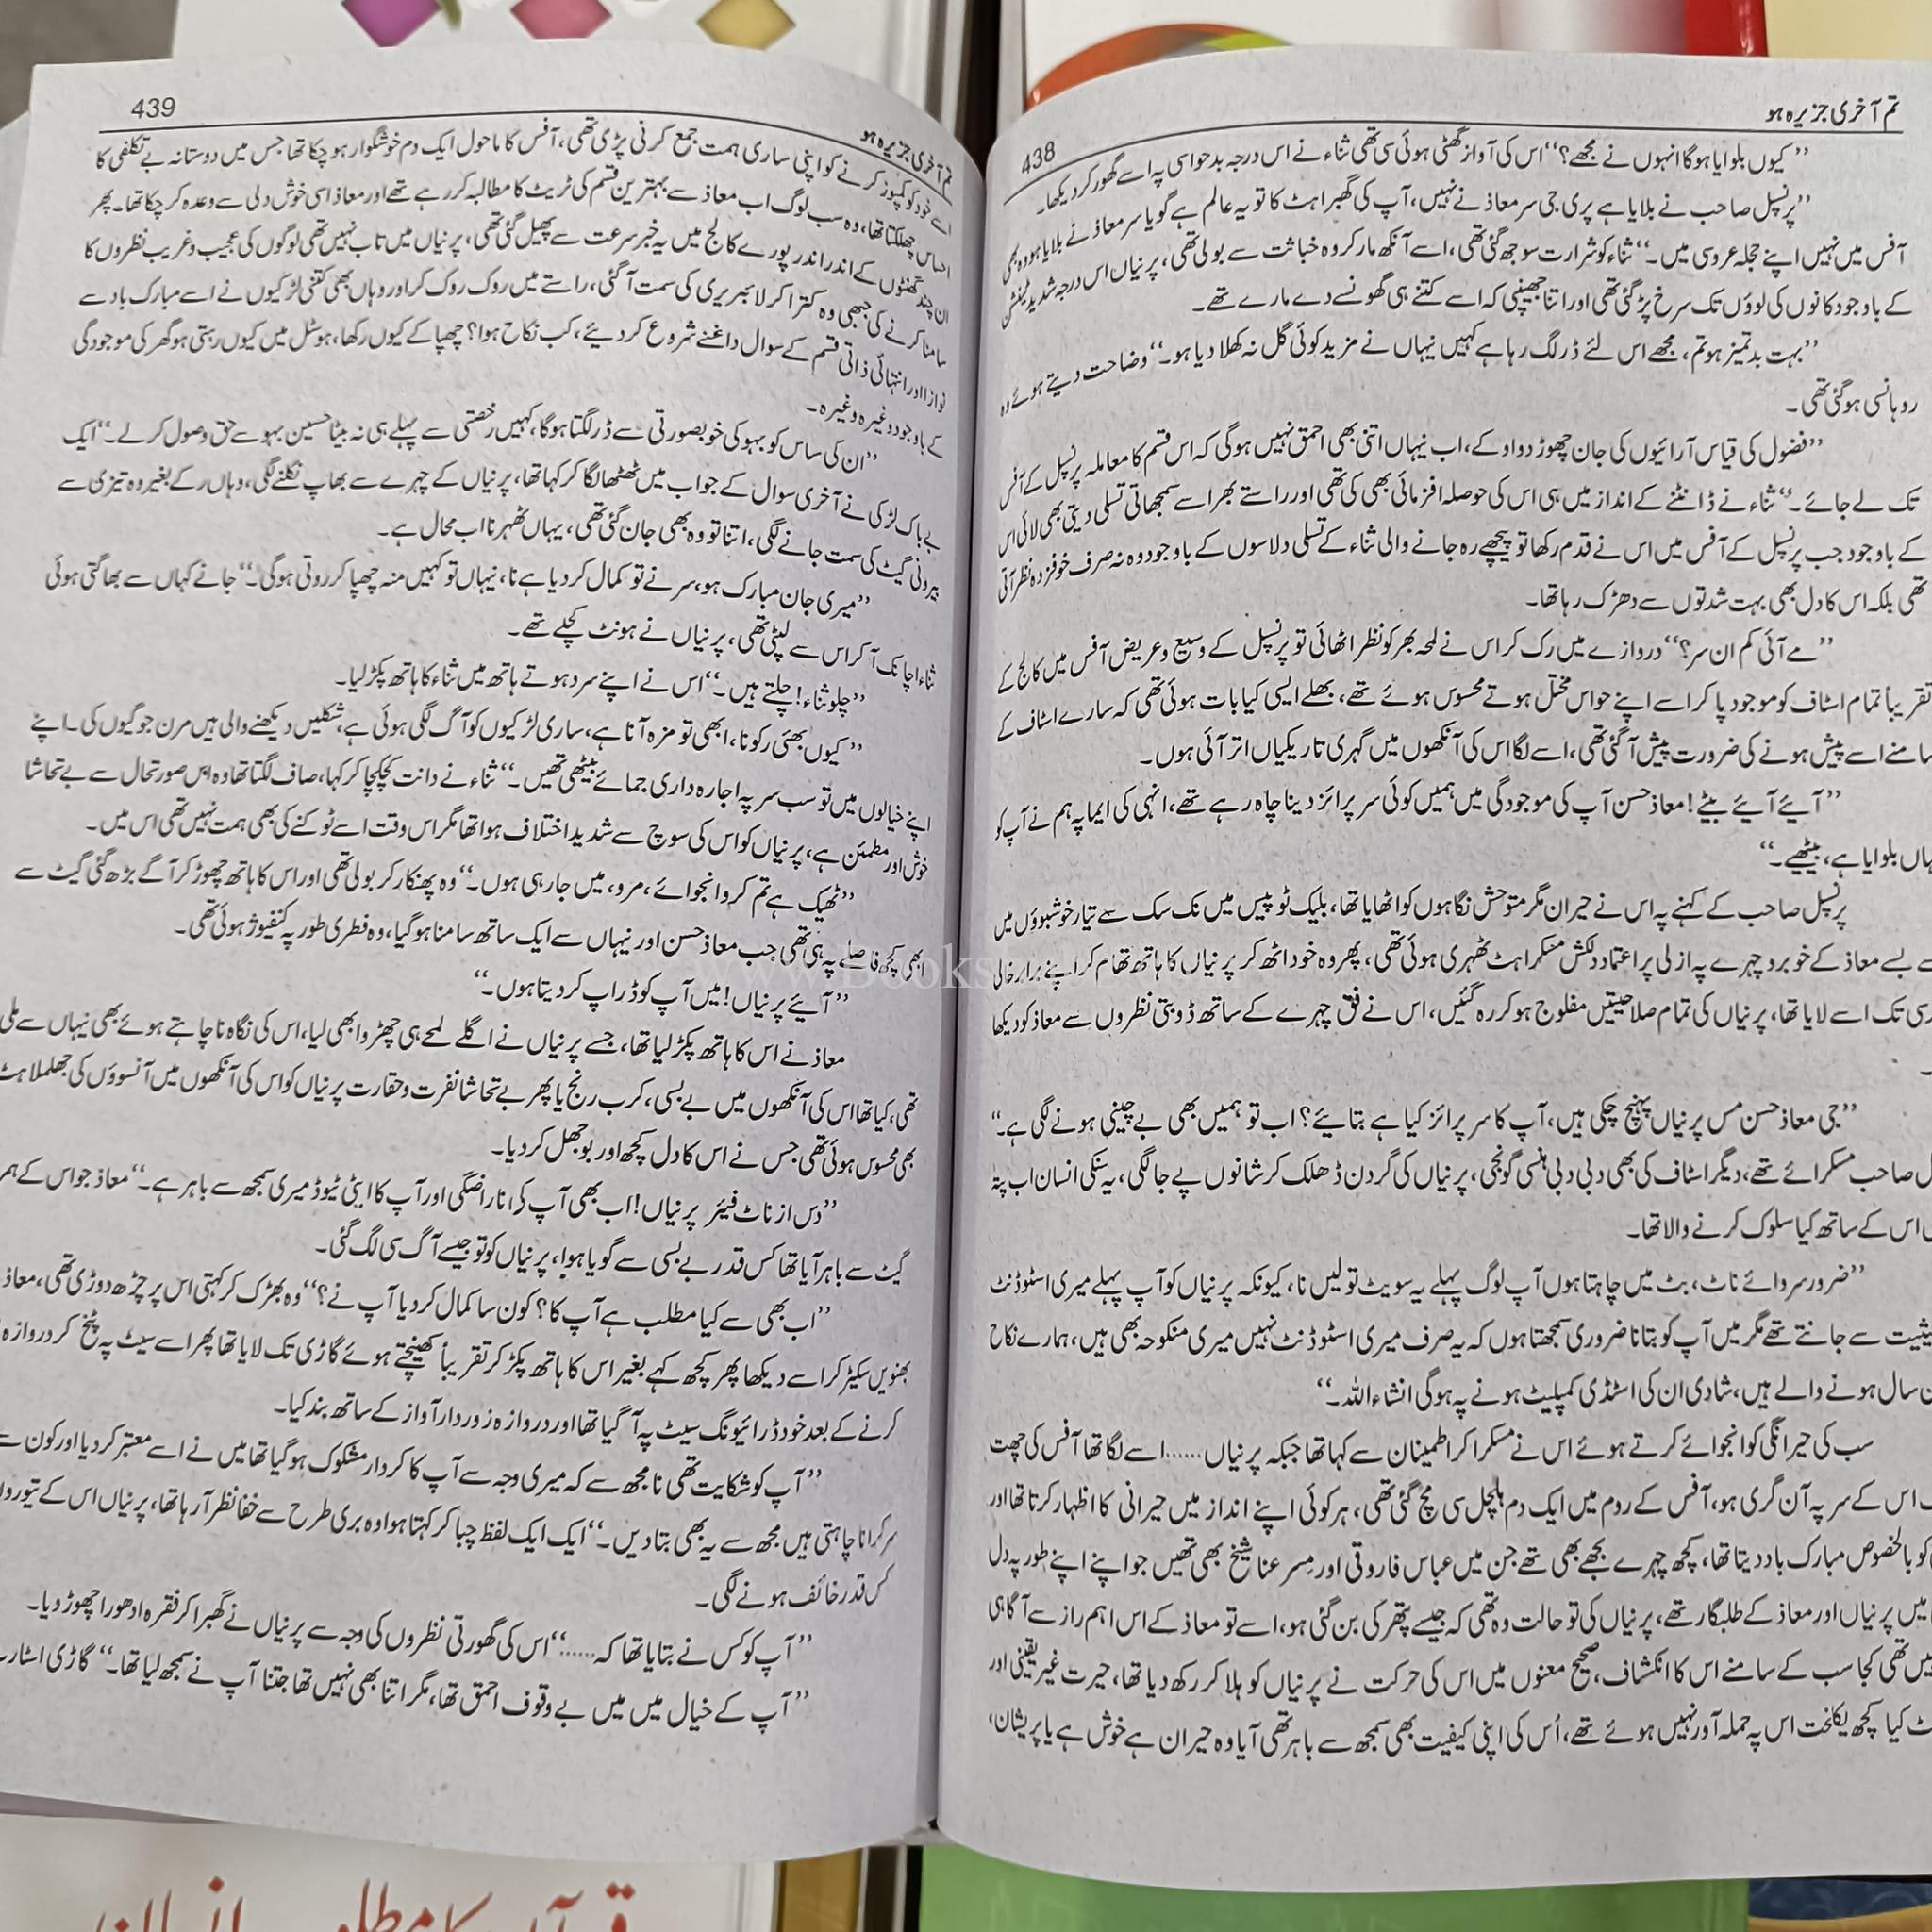 تم آخری جزیرہ ہو
438
’’کیوں بلوایا ہوگا انہوں نے مجھے؟‘‘ اس کی آواز گھٹی ہوئی سی تھی ثناء نے اس درجہ بدحواسی پہ اسے گھور کر دیکھا۔
’’پرنسپل صاحب نے بلایا ہے پری جی سر معاذ نے نہیں، آپ کی گھبراہٹ کا تو یہ عالم ہے گویا سر معاذ نے بلایا ہو وہ بھی
آفس میں نہیں اپنے حجلہ عروسی میں۔‘‘ ثناء کو شرارت سوجھ گئی تھی، اسے آنکھ مار کر وہ خباثت سے بولی تھی، پرنیاں اس درجہ شدید ٹینشن
کے باوجود کانوں کی لوؤں تک سرخ پڑ گئی تھی اور اتنا جھینپی کہ اسے کتنے ہی گھونسے دے مارے تھے۔
’’بہت بدتمیز ہو تم، مجھے اس لئے ڈر لگ رہا ہے کہیں نیہاں نے مزید کوئی گل نہ کھلا دیا ہو۔‘‘ وضاحت دیتے ہوئے وہ
روہانسی ہو گئی تھی۔
’’فضول کی قیاس آرائیوں کی جان چھوڑ دو اوکے، اب نیہاں اتنی بھی احمق نہیں ہوگی کہ اس قسم کا معاملہ پرنسپل کے آفس
تک لے جائے۔‘‘ ثناء نے ڈانٹنے کے انداز میں ہی اس کی حوصلہ افزمائی بھی کی تھی اور راستے بھر اسے سمجھاتی تسلی دیتی بھی لائی اس
کے باوجود جب پرنسپل کے آفس میں اس نے قدم رکھا تو پیچھے رہ جانے والی ثناء کے تسلی دلاسوں کے باوجود وہ نہ صرف خوفزدہ نظر آتی
تھی بلکہ اس کا دل بھی بہت شدتوں سے دھڑک رہا تھا۔
’’مے آئی کم ان سر؟‘‘ دروازے میں رک کر اس نے لمحہ بھر کو نظر اٹھائی تو پرنسپل کے وسیع و عریض آفس میں کالج کے
تقریباً تمام اسٹاف کو موجود پا کر اسے اپنے حواس مختل ہوتے محسوس ہوئے تھے، بھلے ایسی کیا بات ہوئی تھی کہ سارے اسٹاف کے
سامنے اسے پیش ہونے کی ضرورت پیش آ گئی تھی، اسے لگا اس کی آنکھوں میں گہری تاریکیاں اتر آئی ہوں۔
’’آیئے آیئے بیٹے! معاذ حسن آپ کی موجودگی میں ہمیں کوئی سرپرائز دینا چاہ رہے تھے، انہی کی ایما پہ ہم نے آپ کو
یہاں بلوایا ہے، بیٹھیے۔‘‘
پرنسپل صاحب کے کہنے پہ اس نے حیران مگر متوحش نگاہوں کو اٹھایا تھا، بلیک ٹو پیس میں تک سک سے تیار خوشبوؤں میں
بسے معاذ کے خوبرو چہرے پہ ازلی پر اعتماد دلکش مسکراہٹ ٹھہری ہوئی تھی، پھر وہ خود اٹھ کر پرنیاں کا ہاتھ تھام کر اپنے برابر خالی
تک اسے لایا تھا، پرنیاں کی تمام صلاحیتیں مفلوج ہو کر رہ گئیں، اس نے فق چہرے کے ساتھ ڈوبتی نظروں سے معاذ کو دیکھا
’’جی معاذ حسن مس پرنیاں پہنچ چکی ہیں، آپ کا سرپرائز کیا ہے بتایئے؟ اب تو ہمیں بھی بے چینی ہونے لگی ہے۔‘‘
صاحب مسکرائے تھے، دیگر اسٹاف کی بھی دبی دبی ہنسی گونجی، پرنیاں کی گردن ڈھلک کر شانوں پے جا لگی، یہ سنکی انسان اب پتہ
اس کے ساتھ کیا سلوک کرنے والا تھا۔
’’ضرور سر وائے ناٹ، بٹ میں چاہتا ہوں آپ لوگ پہلے یہ سویٹ تو لیں نا، کیونکہ پرنیاں کو آپ پہلے میری اسٹوڈنٹ
سے جانتے تھے مگر میں آپ کو بتانا ضروری سمجھتا ہوں کہ یہ صرف میری اسٹوڈنٹ نہیں میری منکوحہ بھی ہیں، ہمارے نکاح
سال ہونے والے ہیں، شادی ان کی اسٹڈی کمپلیٹ ہونے پہ ہوگی انشاء اللہ۔‘‘
سب کی حیرانگی کو انجوائے کرتے ہوئے اس نے مسکرا کر اطمینان سے کہا تھا جبکہ پرنیاں...... اسے لگا تھا آفس کی چھت
اس کے سر پہ آن گری ہو، آفس کے روم میں ایک دم ہلچل سی مچ گئی تھی، ہر کوئی اپنے انداز میں حیرانی کا اظہار کرتا تھا اور
کو بالخصوص مبارک باد دیتا تھا، کچھ چہرے بجھے بھی تھے جن میں عباس فاروقی اور مسر عنا شیخ بھی تھیں جو اپنے اپنے طور پہ دل
میں پرنیاں اور معاذ کے طلبگار تھے، پرنیاں کی تو حالت وہ تھی کہ جیسے پتھر کی بن گئی ہو، اسے تو معاذ کے اس اہم راز سے آگاہی
نہیں تھی کجا سب کے سامنے اس کا انکشاف، صحیح معنوں میں اس کی حرکت نے پرنیاں کو ہلا کر رکھ دیا تھا، حیرت غیر یقینی اور
کیا کچھ یکلخت اس پہ حملہ آور نہیں ہوئے تھے، اُس کی اپنی کیفیت بھی سمجھ سے باہر تھی آیا وہ حیران ہے خوش ہے یا پریشان،
439
تم آخری جزیرہ ہو
اسے خود کو کمپوز کرنے کو اپنی ساری ہمت جمع کرنی پڑی تھی، آفس کا ماحول ایک دم خوشگوار ہو چکا تھا جس میں دوستانہ بے تکلفی کا
احساس چھلکتا تھا، وہ سب لوگ اب معاذ سے بہترین قسم کی ٹریٹ کا مطالبہ کر رہے تھے اور معاذ اسی خوش دلی سے وعدہ کر چکا تھا۔ پھر
ان چند گھنٹوں کے اندر اندر پورے کالج میں یہ خبر سرعت سے پھیل گئی تھی، پرنیاں میں تاب نہیں تھی لوگوں کی عجیب و غریب نظروں کا
سامنا کرنے کی جبھی وہ کترا کر لائبریری کی سمت آ گئی، راستے میں روک روک کر اور وہاں بھی کتنی لڑکیوں نے اسے مبارک باد سے
نوازا اور انتہائی ذاتی قسم کے سوال داغنے شروع کر دیئے، کب نکاح ہوا؟ چھپا کے کیوں رکھا، ہوسٹل میں کیوں رہتی ہو گھر کی موجودگی
کے باوجود وغیرہ وغیرہ۔
’’ان کی ساس کو بہو کی خوبصورتی سے ڈر لگتا ہوگا، کہیں رخصتی سے پہلے ہی نہ بیٹا حسین بہو سے حق وصول کر لے۔‘‘ ایک
بے باک لڑکی نے آخری سوال کے جواب میں ٹھٹھا لگا کر کہا تھا، پرنیاں کے چہرے سے بھاپ نکلنے لگی، وہاں رکے بغیر وہ تیزی سے
بیرونی گیٹ کی سمت جانے لگی، اتنا تو وہ بھی جان گئی تھی، یہاں ٹھہرنا اب محال ہے۔
’’میری جان مبارک ہو، سر نے تو کمال کر دیا ہے نا، نیہاں تو کہیں منہ چھپا کر روتی ہوگی۔‘‘ جانے کہاں سے بھاگتی ہوئی
ثناء اچانک آ کر اس سے لپٹی تھی، پرنیاں نے ہونٹ کچلے تھے۔
’’چلو ثناء! چلتے ہیں۔‘‘ اس نے اپنے سرد ہوتے ہاتھ میں ثناء کا ہاتھ پکڑ لیا۔
’’کیوں بھئی رکو نا، ابھی تو مزہ آنا ہے، ساری لڑکیوں کو آگ لگی ہوئی ہے، شکلیں دیکھنے والی ہیں مرن جوگیوں کی۔ اپنے
اپنے خیالوں میں تو سب سر پہ اجارہ داری جمائے بیٹھی تھیں۔‘‘ ثناء نے دانت کچکچا کر کہا، صاف لگتا تھا وہ اس صورتحال سے بے تحاشا
خوش اور مطمئن ہے، پرنیاں کو اس کی سوچ سے شدید اختلاف ہوا تھا مگر اس وقت اسے ٹوکنے کی بھی ہمت نہیں تھی اس میں۔
’’ٹھیک ہے تم کرو انجوائے، مرو، میں جا رہی ہوں۔‘‘ وہ پھنکار کر بولی تھی اور اس کا ہاتھ چھوڑ کر آگے بڑھ گئی گیٹ سے
ابھی کچھ فاصلے پہ ہی تھی جب معاذ حسن اور نیہاں سے ایک ساتھ سامنا ہو گیا، وہ فطری طور پہ کنفیوژ ہوئی تھی۔
’’آیئے پرنیاں! میں آپ کو ڈراپ کر دیتا ہوں۔‘‘
معاذ نے اس کا ہاتھ پکڑ لیا تھا، جسے پرنیاں نے اگلے لمحے ہی چھڑوا بھی لیا، اس کی نگاہ نا چاہتے ہوئے بھی نیہاں سے ملی
تھی، کیا تھا اس کی آنکھوں میں بے بسی، کرب رنج یا پھر بے تحاشا نفرت و حقارت پرنیاں کو اس کی آنکھوں میں آنسوؤں کی جھلملاہٹ
بھی محسوس ہوئی تھی جس نے اس کا دل کچھ اور بوجھل کر دیا۔
’’دس از ناٹ فیئر پرنیاں! اب بھی آپ کی ناراضگی اور آپ کا ایٹی ٹیوڈ میری سمجھ سے باہر ہے۔‘‘ معاذ جو اس کے
گیٹ سے باہر آیا تھا کس قدر بے بسی سے گویا ہوا، پرنیاں کو تو جیسے آگ سی لگ گئی۔
’’اب بھی سے کیا مطلب ہے آپ کا؟ کون سا کمال کر دیا آپ نے؟‘‘ وہ بھڑک کر کہتی اس پر چڑھ دوڑی تھی، معاذ
بھنویں سکیڑ کر اسے دیکھا پھر کچھ کہے بغیر اس کا ہاتھ پکڑ کر تقریباً کھینچتے ہوئے گاڑی تک لایا تھا پھر اسے سیٹ پہ پٹخ کر دروازہ
کرنے کے بعد خود ڈرائیونگ سیٹ پہ آ گیا تھا اور دروازہ زوردار آواز کے ساتھ بند کیا۔
’’آپ کو شکایت تھی نا مجھ سے کہ میری وجہ سے آپ کا کردار مشکوک ہو گیا تھا میں نے اسے معتبر کر دیا اور کون
کرانا چاہتی ہیں مجھ سے یہ بھی بتا دیں۔‘‘ ایک ایک لفظ چبا کر کہتا ہوا وہ بری طرح سے خفا نظر آ رہا تھا، پرنیاں اس کے
کس قدر خائف ہونے لگی۔
’’آپ کو کس نے بتایا تھا کہ......‘‘ اس کی گھورتی نظروں کی وجہ سے پرنیاں نے گھبرا کر فقرہ ادھورا چھوڑ دیا۔
’’آپ کے خیال میں میں بے وقوف احمق تھا، مگر اتنا بھی نہیں تھا جتنا آپ نے سمجھ لیا تھا۔‘‘ گاڑی